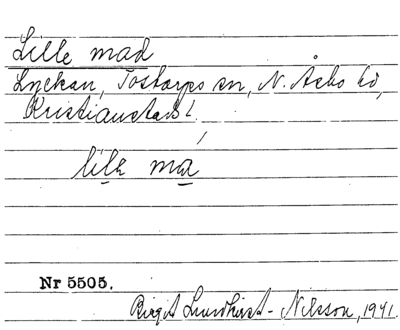 Lille mad
Lyckan, Tostarps sn, N. Åsbo hd,
Kristianstads l.
lilɘ
Nr 5505.
Birgit Lundkvist-Nilsson, 1941.